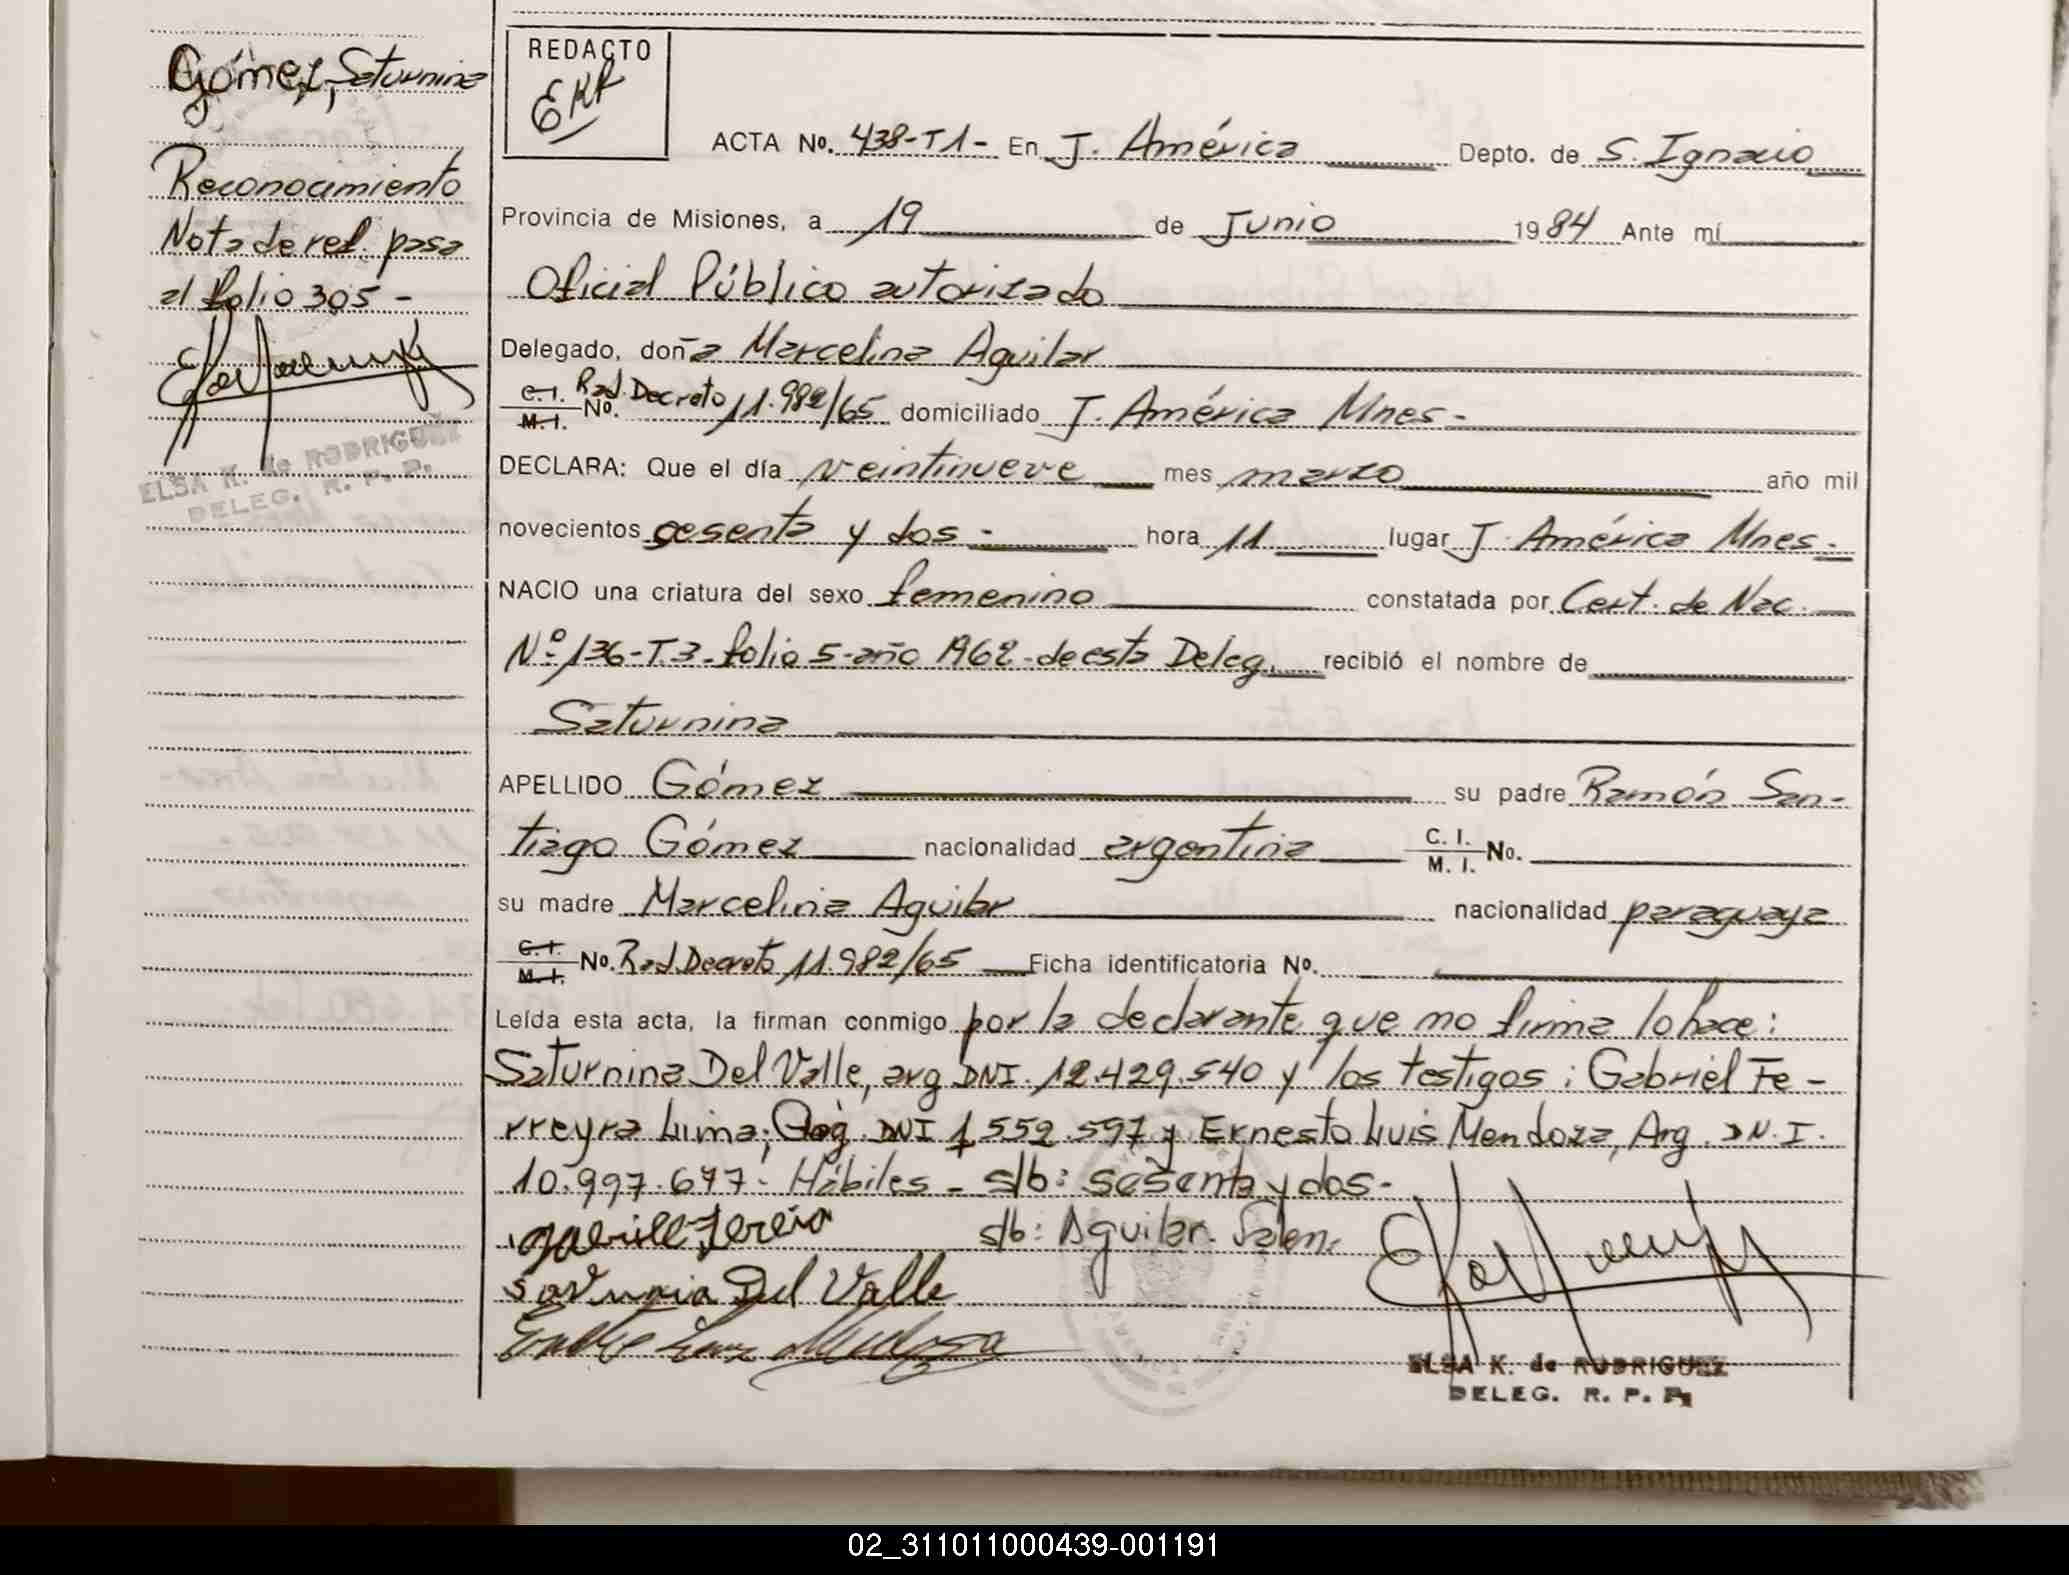 Gómez, Saturnina
Reconocimiento
Nota de ref. pasa
al folio 305 -
ELSA K. de RODRIGUEZ
DELEG. R. P. P.
REDACTO
EKR
ACTA No. 438-T1- En J. América Depto. de S. Ignacio
Provincia de Misiones, a 19 de Junio 1984 Ante mí
Oficial Público autorizado
Delegado, doña Marcelina Aguilar
C.I. M.I. No. Rad. Decreto 11.982/65 domiciliado J. América Mnes-
DECLARA: Que el día veintinueve mes marzo año mil
novecientos sesenta y dos - hora 11 lugar J. América Mnes-
NACIO una criatura del sexo femenino constatada por Cert. de Nac.
Nº 136-T.3-folio 5-año 1962-de esta Deleg. recibió el nombre de
Saturnina
APELLIDO Gómez su padre Ramón San-
tiago Gómez nacionalidad argentina C. I. M. I. No.
su madre Marcelina Aguilar nacionalidad paraguaya
C.I. M.I. No. Rad. Decreto 11.982/65 Ficha identificatoria No.
Leída esta acta, la firman conmigo por la declarante que no firma lo hace:
Saturnina Del Valle, arg DNI. 12.429.540 y los testigos: Gabriel Fe-
rreyra Lima; Arg. DNI 1.552.597 y Ernesto Luis Mendoza, Arg. D.N.I.
10.997.677- Hábiles - s/b: sesenta y dos-
s/b: Aguilar. Valen.
Saturnia Del Valle
ELSA K. de RODRIGUEZ
DELEG. R. P. P.
02_311011000439-001191